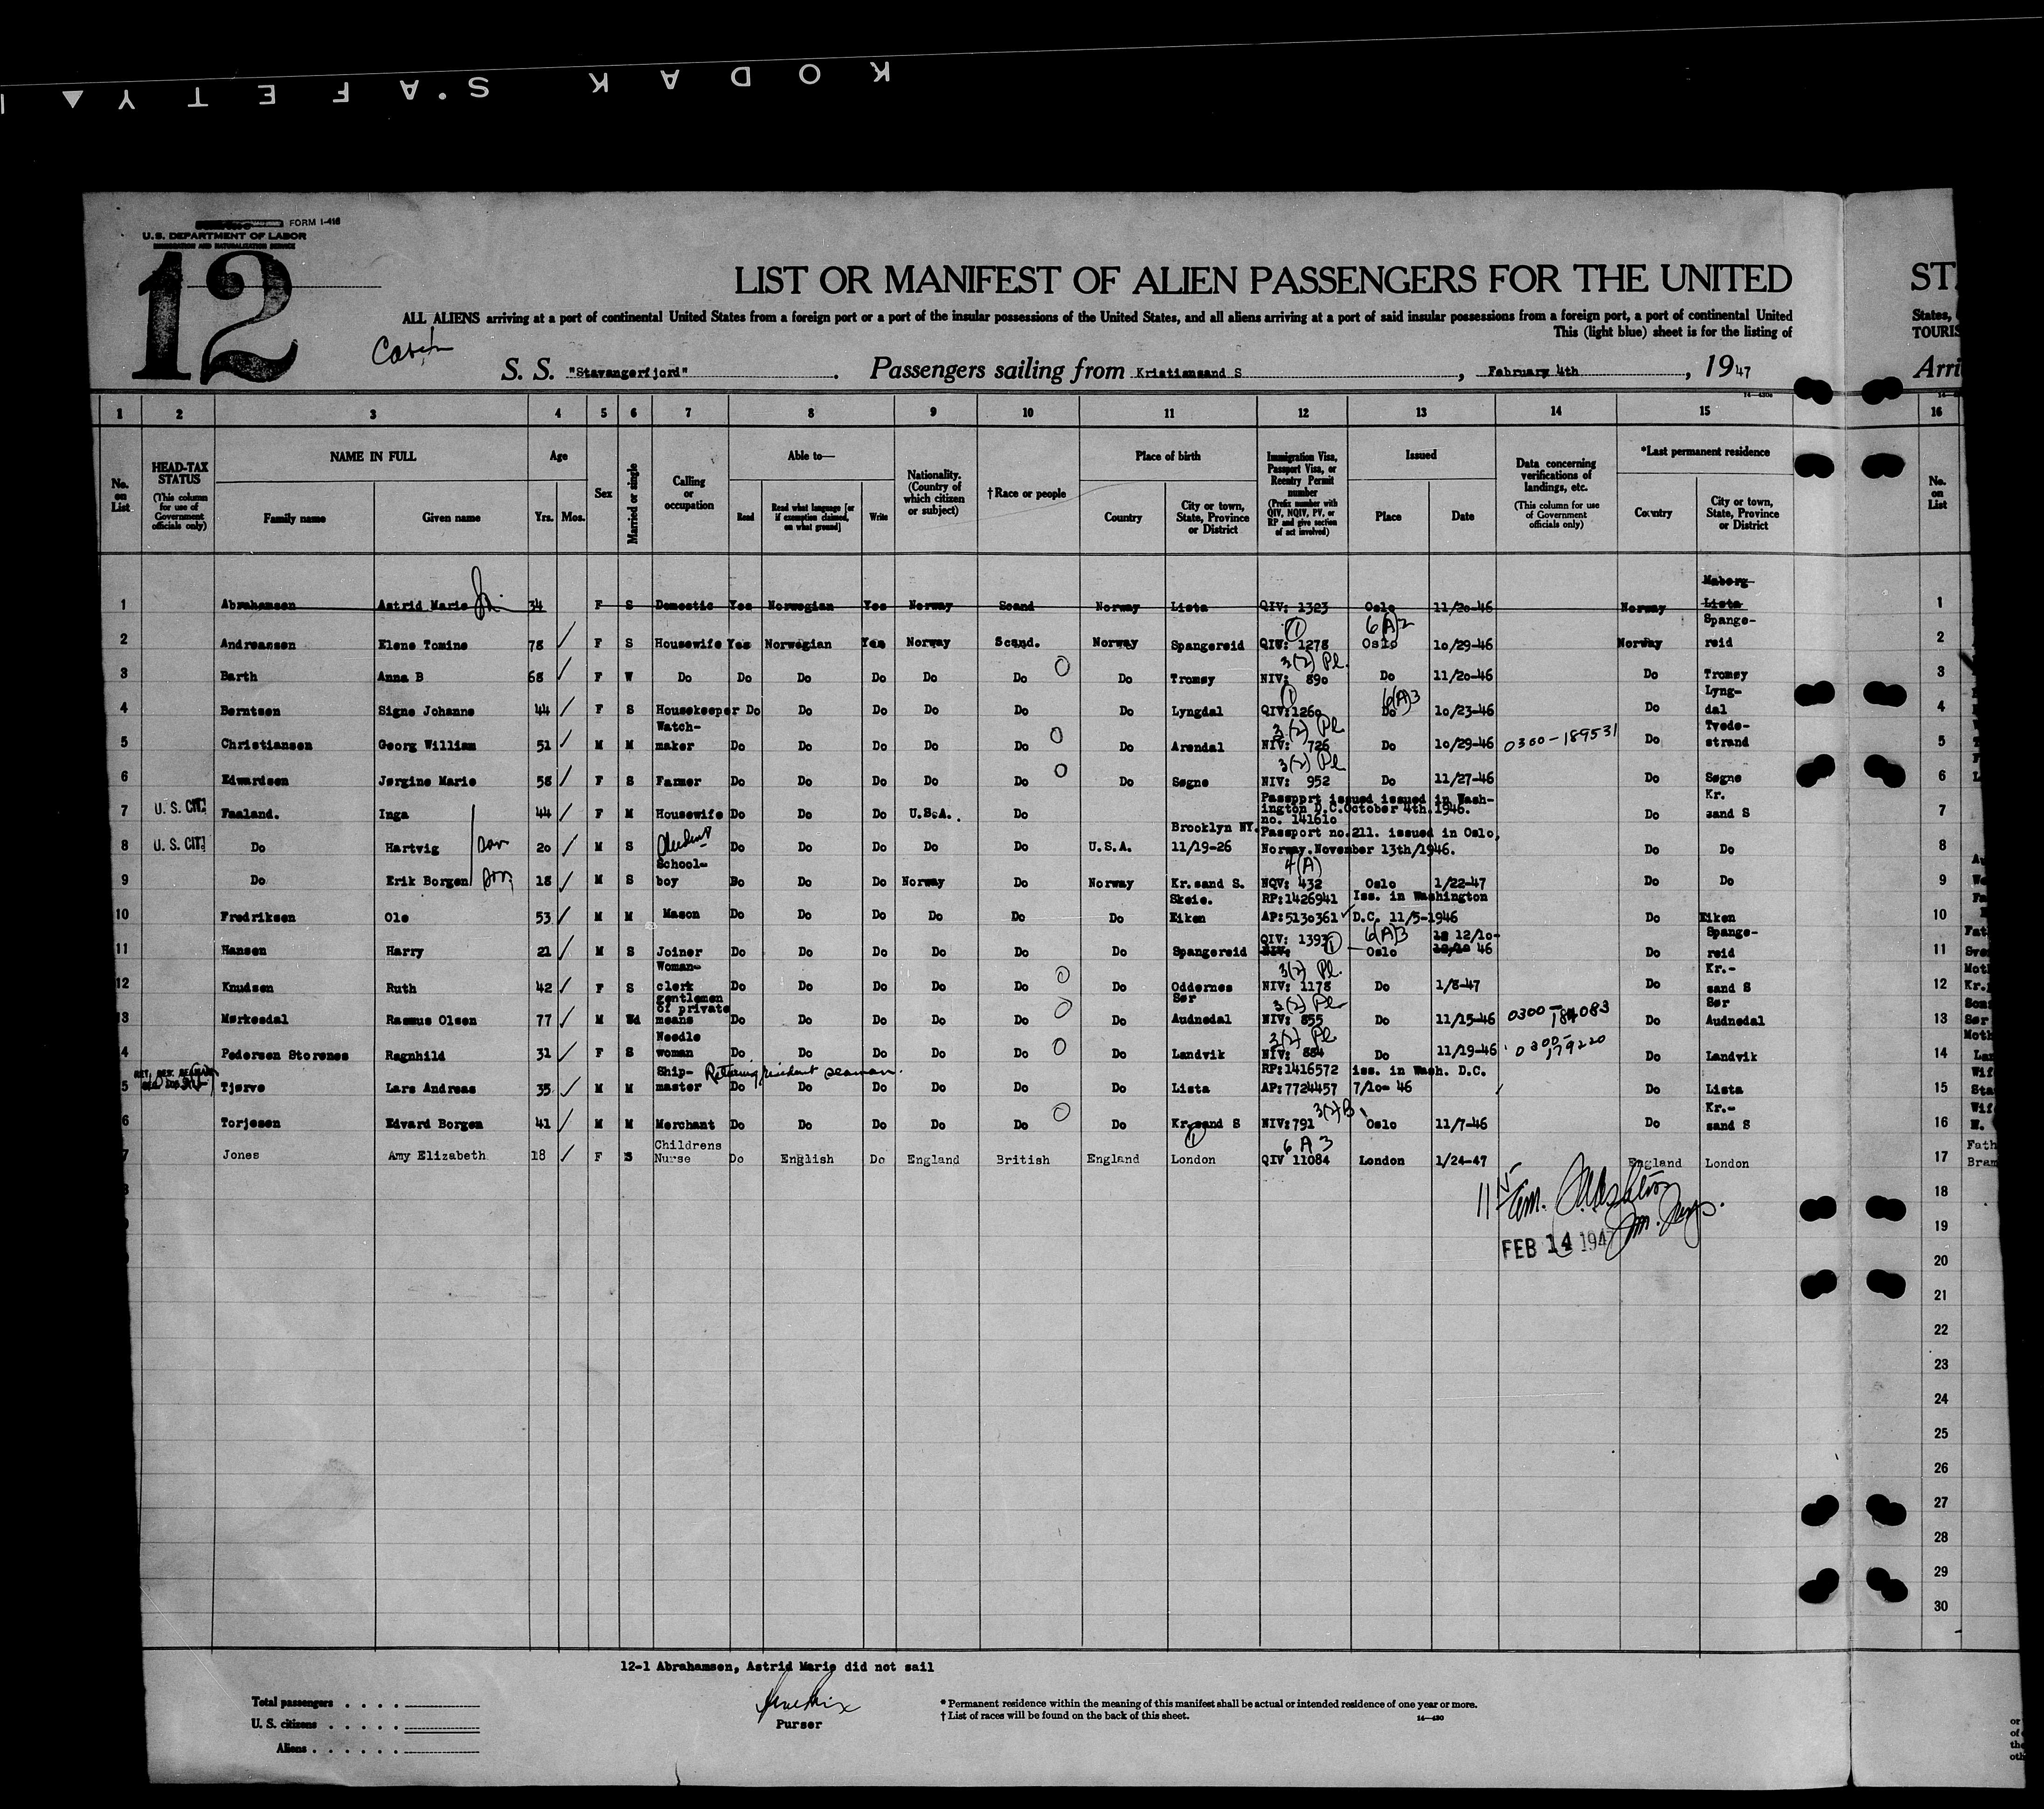 KODAK S.AFETY
FORM I-416
U.S. DEPARTMENT OF LABOR
IMMIGRATION AND NATURALIZATION SERVICE
12
LIST OR MANIFEST OF ALIEN PASSENGERS FOR THE UNITED
ST
ALL ALIENS arriving at a port of continental United States from a foreign port or a port of the insular possessions of the United States, and all aliens arriving at a port of said insular possessions from a foreign port, a port of continental United
States,
This (light blue) sheet is for the listing of
TOURIS
Cabin
S. S. "Stavangerfjord". Passengers sailing from Kristiansand S, February 4th, 1947
Arri
1 2 3 4 5 6 7 8 9 10 11 12 13 14 15 16
No. on List
HEAD-TAX STATUS (This column for use of Government officials only)
NAME IN FULL
Family name Given name
Age
Yrs. Mos.
Sex
Married or single
Calling or occupation
Able to—
Read
Read what language [or if exemption claimed, on what ground]
Write
Nationality. (Country of which citizen or subject)
†Race or people
Place of birth
Country
City or town, State, Province or District
Immigration Visa, Passport Visa, or Reentry Permit number (Prefix number with QIV, NQIV, PV, or RP and give section of act involved)
Issued
Place Date
Data concerning verifications of landings, etc. (This column for use of Government officials only)
*Last permanent residence
Country
City or town, State, Province or District
No. on List
1 Abrahamsen Astrid Marie 34 F S Domestic Yes Norwegian Yes Norway Scand Norway Lista QIV: 1323 Oslo 11/20-46 Norway Maberg Lista 1
2 Andreassen Elene Tomine 78 F S Housewife Yes Norwegian Yes Norway Scand. Norway Spangereid QIV: 1278 (1) Oslo 6(A)2 10/29-46 Norway Spange-reid 2
3 Barth Anna B 68 F W Do Do Do Do Do Do Do Tromsy NIV: 890 3(2) Pl. Do 11/20-46 Do Tromsy 3
4 Berntsen Signe Johanne 44 F S Housekeeper Do Do Do Do Do Do Lyngdal QIV:1260 (1) Do 6(A)3 10/23-46 Do Lyng-dal 4
5 Christiansen Georg William 51 M M Watch-maker Do Do Do Do Do Do Arendal NIV: 726 3(2) Pl Do 10/29-46 0300-189531 Do Tvede-strand 5
6 Edwardsen Jørgine Marie 58 F S Farmer Do Do Do Do Do Do Søgne NIV: 952 3(2) Pl Do 11/27-46 Do Søgne 6
7 U. S. CIT. Faaland. Inga 44 F M Housewife Do Do Do U.S.A. Do Passpprt issued issued in Wash-ington D.C.October 4th.1946. no. 141610 Do Kr. sand S 7
8 U. S. CIT. Do Hartvig son 20 M S Student Do Do Do Do Do U.S.A. Brooklyn NY. 11/19-26 Passport no.211. issued in Oslo, Norway.November 13th/1946. Do Do 8
9 Do Erik Borgen son 18 M S School-boy Do Do Do Norway Do Norway Kr.sand S. NQV: 432 4(A) Oslo 1/22-47 Do Do 9
10 Fredriksen Ole 53 M M Mason Do Do Do Do Do Do Skeie. Eiken RP:1426941 AP:5130361 Iss. in Washington D.C. 11/5-1946 Do Eiken 10
11 Hansen Harry 21 M S Joiner Do Do Do Do Do Do Spangereid QIV: 1393 (1) Oslo 6(A)3 12/10-46 Do Spange-reid 11
12 Knudsen Ruth 42 F S Woman-clerk Do Do Do Do Do Do Oddernes NIV: 1178 3(2) Pl. Do 1/8-47 Do Kr.-sand S 12
13 Mørkesdal Rasmus Olsen 77 M Wd gentlemen of private means Do Do Do Do Do Do Sør Audnedal NIV: 855 3(2) Pl Do 11/15-46 0300-184083 Do Sør Audnedal 13
4 Pedersen Storenes Ragnhild 31 F S Needle woman Do Do Do Do Do Do Landvik NIV: 884 3(2) Pl Do 11/19-46 0300-179220 Do Landvik 14
5 Tjørve Lars Andreas 35 M M Ship-master Returning resident seaman. Do Do Do Do Do Do Lista RP:1416572 AP:7724457 iss. in Wash. D.C. 7/10-46 Do Lista 15
6 Torjesen Edvard Borgen 41 M M Merchant Do Do Do Do Do Do Kr.sand S NIV:791 3(2)B Oslo 11/7-46 Do Kr.-sand S 16
7 Jones Amy Elizabeth 18 F S Childrens Nurse Do English Do England British England London (1) QIV 11084 6 A 3 London 1/24-47 England London 17
8 18
19
20
21
22
23
24
25
26
27
28
29
30
FEB 14 1947
12-1 Abrahamsen, Astrid Marie did not sail
Purser
Total passengers
U. S. citizens
Aliens
* Permanent residence within the meaning of this manifest shall be actual or intended residence of one year or more.
† List of races will be found on the back of this sheet.
14—430